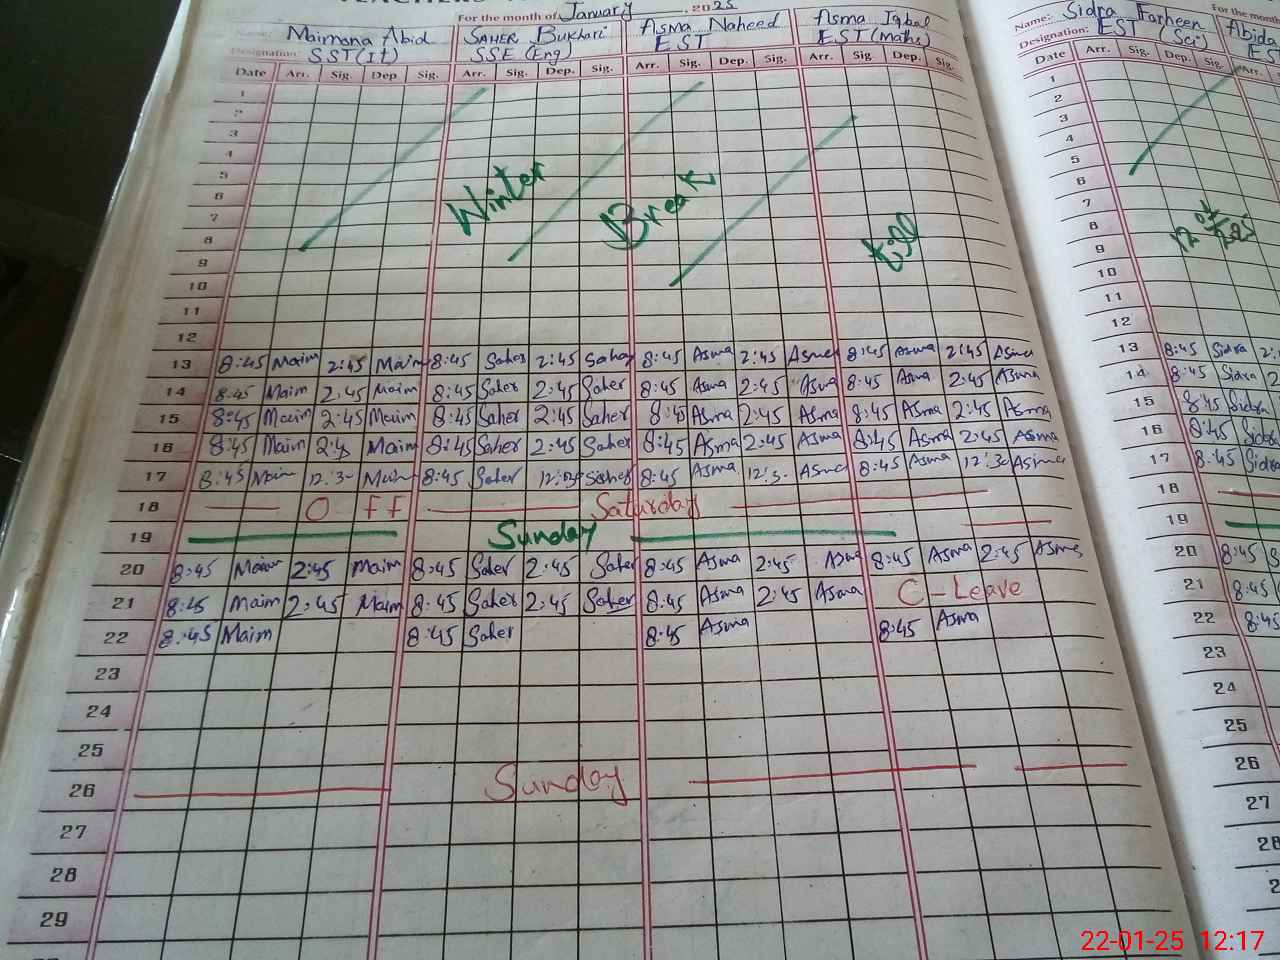 For the month of January 2025
Name: Maimona Abid SAHER Bukhari Asma Naheed Asma Iqbal
Designation: SST(It) SSE (Eng) EST EST (Maths)
Date Arr. Sig. Dep Sig. Arr. Sig. Dep. Sig. Arr. Sig. Dep. Sig. Arr. Sig. Dep. Sig.
1
2
3
4
5
6
Winter Break till
7
8
9
10
11
12
13 8:45 Maim 2:45 Maim 8:45 Saher 2:45 Saher 8:45 Asma 2:45 Asma 8:45 Asma 2:45 Asma
14 8:45 Maim 2:45 Maim 8:45 Saher 2:45 Saher 8:45 Asma 2:45 Asma 8:45 Asma 2:45 Asma
15 8:45 Maim 2:45 Maim 8:45 Saher 2:45 Saher 8:45 Asma 2:45 Asma 8:45 Asma 2:45 Asma
16 8:45 Maim 2:4 Maim 8:45 Saher 2:45 Saher 8:45 Asma 2:45 Asma 8:45 Asma 2:45 Asma
17 8:45 Maim 12:3 Maim 8:45 Saher 12:3 Saher 8:45 Asma 12:3 Asma 8:45 Asma 12:3 Asma
18 OFF Saturday
19 Sunday
20 8:45 Maim 2:45 Maim 8:45 Saher 2:45 Saher 8:45 Asma 2:45 Asma 8:45 Asma 2:45 Asma
21 8:45 Maim 2:45 Maim 8:45 Saher 2:45 Saher 8:45 Asma 2:45 Asma C-Leave
22 8:45 Maim 8:45 Saher 8:45 Asma 8:45 Asma
23
24
25
26 Sunday
27
28
29
For the mont
Name: Sidra Farheen Abida
Designation: EST (Sci) ES
Date Arr. Sig. Dep. Sig. Arr.
1
2
3
4
5
6
7
8
9
10
11
12
13 8:45 Sidra 2:
14 8:45 Sidra 2
15 8:45 Sidra
16 8:45 Sidra
17 8:45 Sidra
18
19
20 8:45 S
21 8:45
22 8:45
23
24
25
26
27
28
22-01-25 12:17